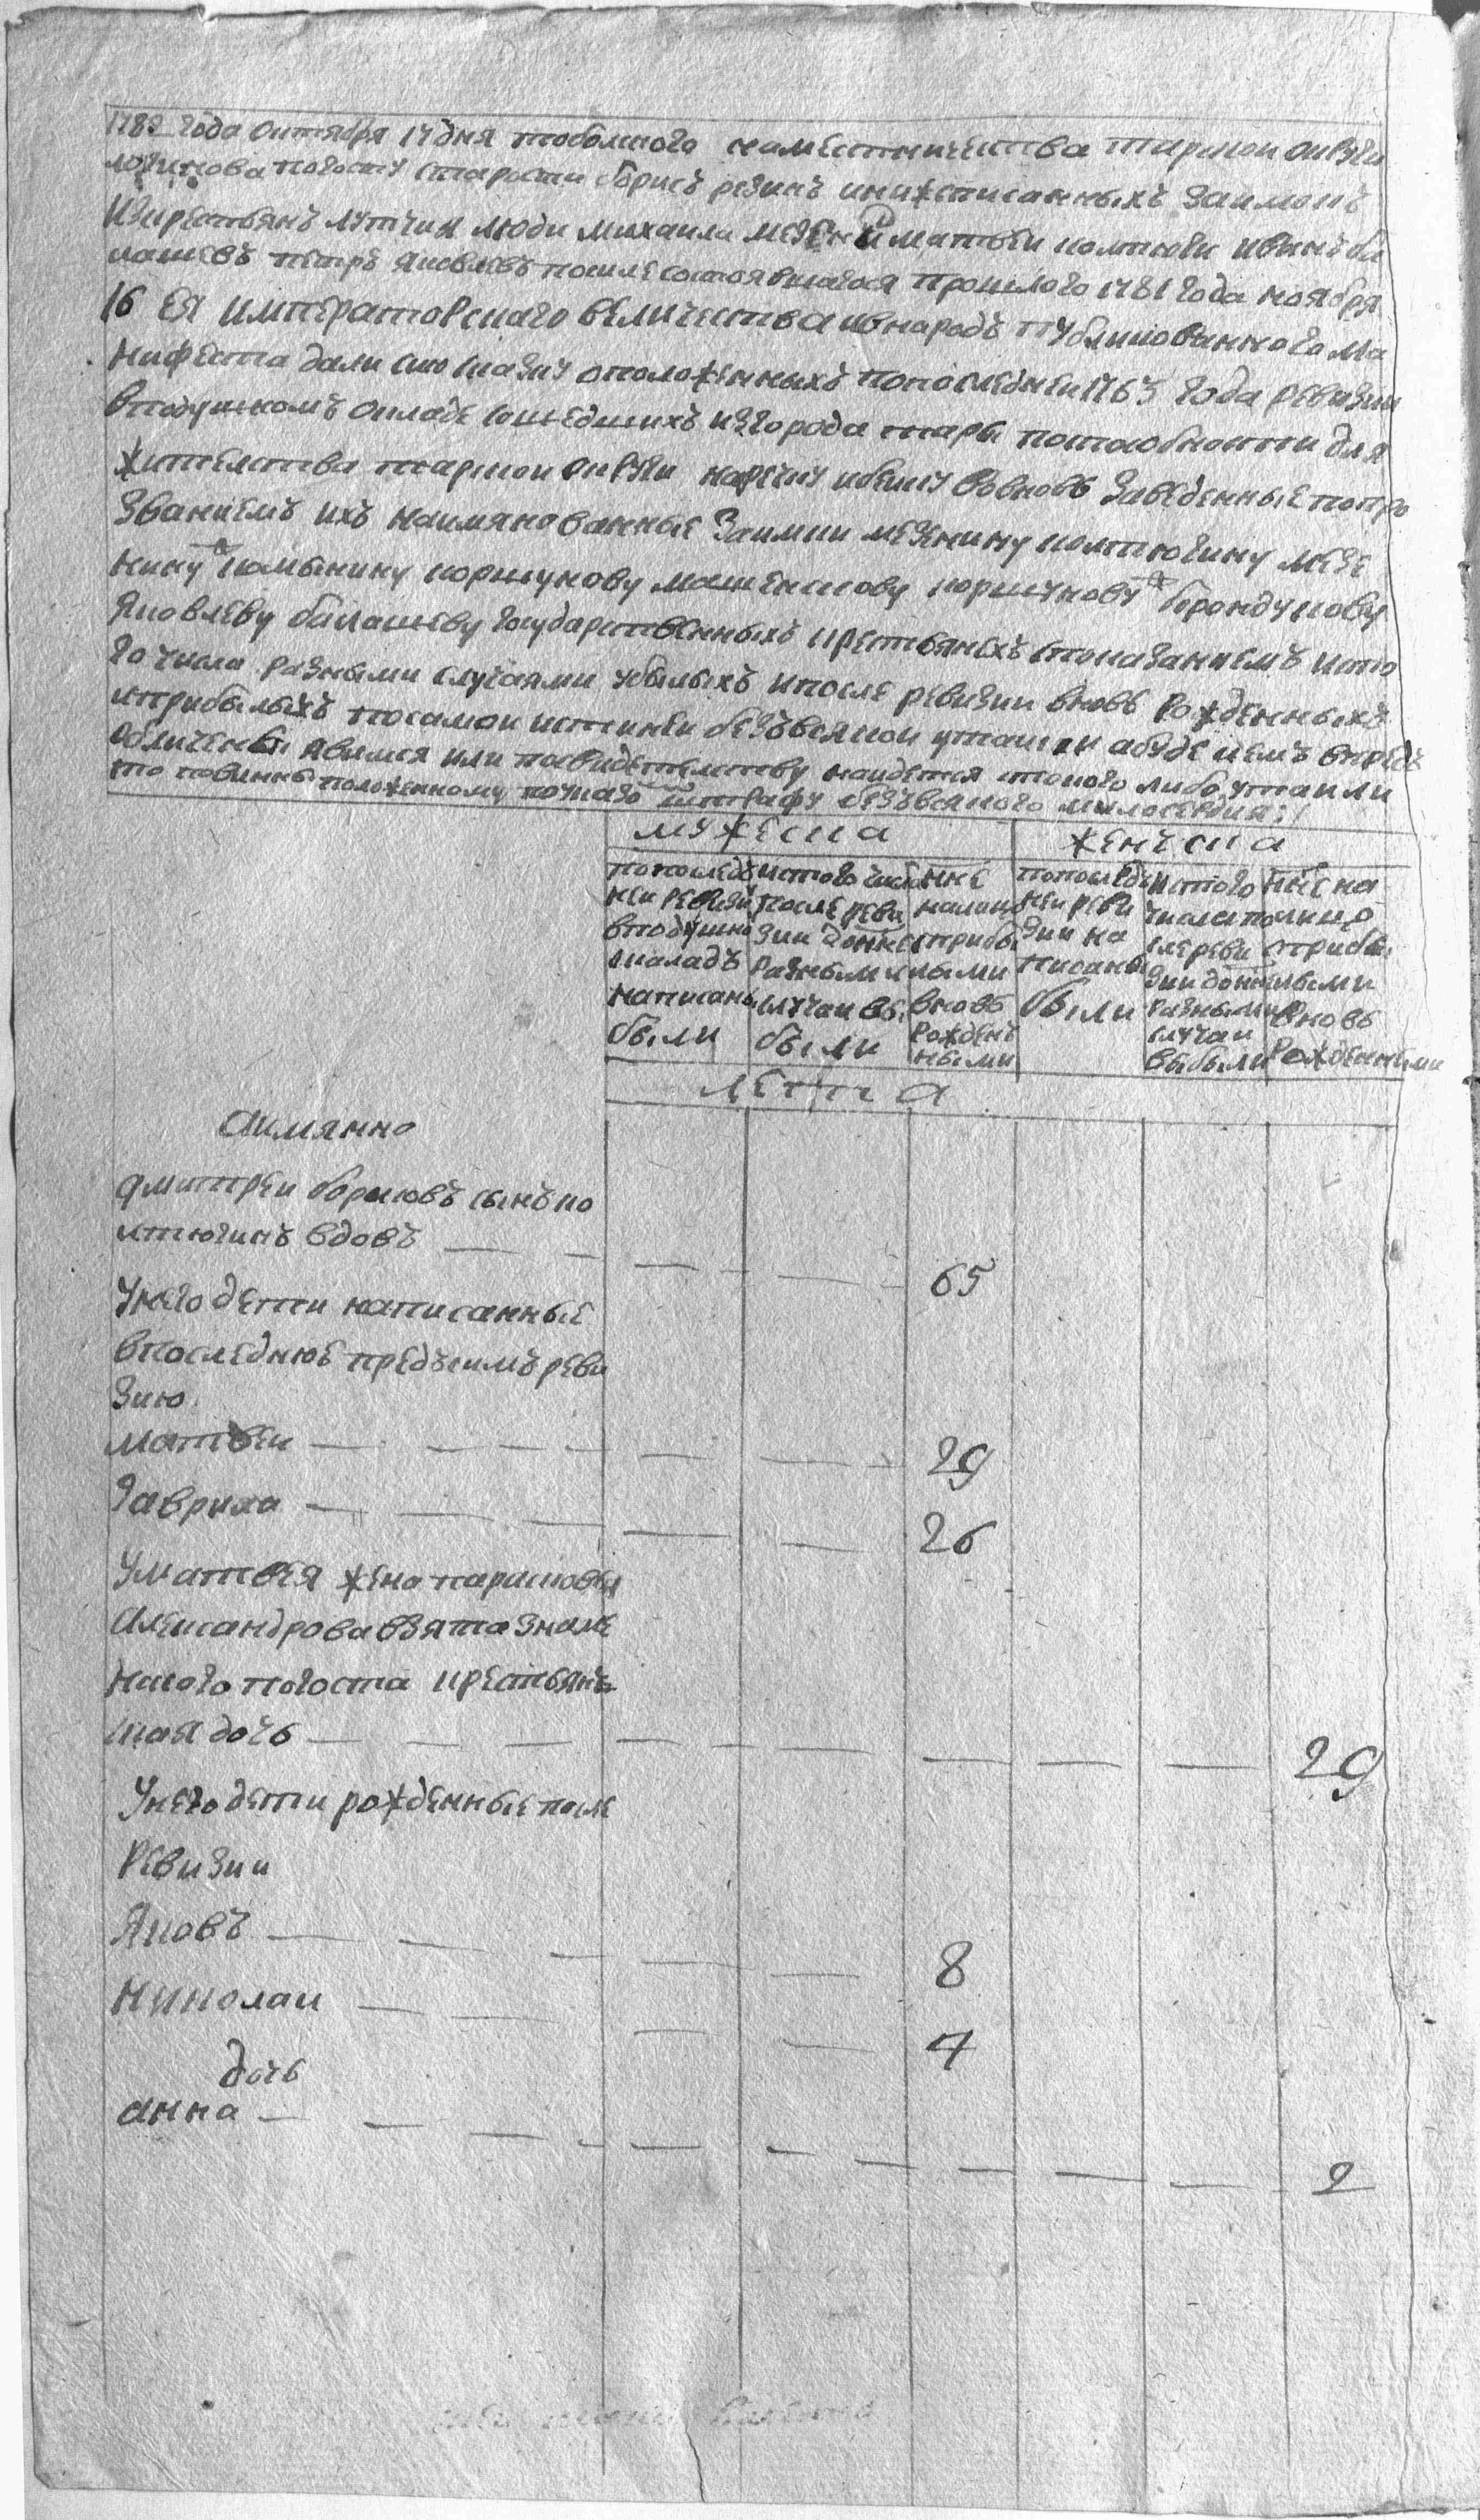 1782 года октября 17 дня тобольского наместничества тарской округи
логинова погосту староста борисъ резинъ инижеписанныхъ заимокъ
искрестьянъ лутчия люди михаила мезенинъ матвеи колтюги иванъ ба
лашевъ петръ яковлевъ после состоявшагося прошлого 1781 года ноября
16 ея императорскаго величества ивнародъ публикованного ма
нифеста дали сию скаску оположенныхъ попоследнеи 1763 года ревизии
вподушномъ окладе сошедшихъ изгорода тары поспособности для
жительства тарской округи наречку ибеику вовновь заведенные попро
званиемъ ихъ наимянованные заимки мезенину колтюгину мезе
нину камынину коршунову машенскову коршунову борондукову
яковлеву балашеву государственныхъ крестьянехъ споказаниемъ исто
го числа разными случаями убылыхъ ипосле ревизии вновь рожденныхъ
иприбылыхъ посамои истиннеи безъвсякои утаики абуде кемъ впредь
обличены явимся или посвидетелству наидется чтокого либо утаили
то повинны положенному поуказо штрафу безъвсякого милосердия:/
мужеска
женъска
попослед
неи ревизии
вподушно
окладъ
написаны
были
истого числа
после реви
зии донне
разными
случаи вы
были
нне
налицо
сприбы
лыми
вновь
рожденъ
ными
попослед
неи реви
зии на
писаны
были
истого
числа по
сле реви
зии донне
разными
случаи
выбыли
нне на
лицо
сприбы
лыми
вновь
рожденными
лета
аимянно
дмитреи борисовъ сынъ ко
лтюгинъ вдовъ — — — — — 65
унего дети написанные
впоследнюе предъсимъ реви
зию
матвеи — — — — — — — 29
гаврила — — — — — 26
уматвея жена парасковья
александрова взята знаме
нского погоста крестьянъ
ская дочь — — — — — — — — — 29
унего дети рожденные после
ревизии
яковъ — — — — — 8
николаи — — — — 4
дочь
анна — — — — — — — — — 2